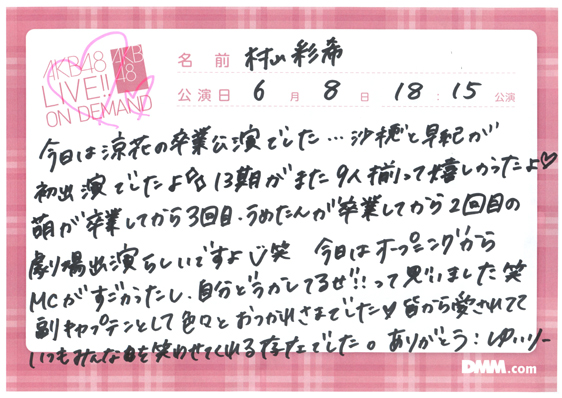 AKB48
LIVE!!
ON DEMAND
AKB
48
名前 村山彩希
公演日 6月8日 18:15公演
今日は涼花の卒業公演でした…沙穂と早紀が
初出演でしたよ 13期がまた9人揃って嬉しかったよ♡
萌が卒業してから3回目、うめたんが卒業してから2回目の
劇場出演らしいですよ 笑 今日はオープニングから
MCがすごかったし、自分どうかしてるぜ!!って思いました笑
副キャプテンとして色々とおつかれさまでした♡ 皆から愛されてて
いつもみんなを笑わせてくれる存在でした。ありがとう:ゆいりー
DMM.com